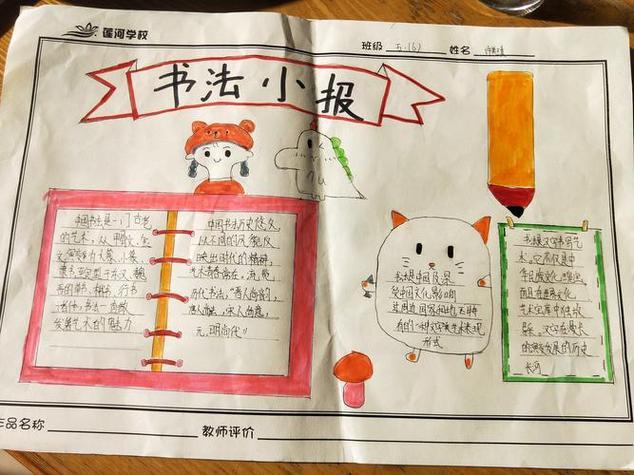 莲河学校
班级 五.(6) 姓名
书法小报
中国书法是一门古老
的艺术，从甲骨文、金
文演变为大篆、小篆
隶书，至定型于东汉、魏
晋的草书、楷书、行书
诸体，书法一直散
发着艺术的魅力
中国书法历史悠久，
以不同的风貌反
映出时代的精神，
艺术青春常在。浏览
历代书法，"晋人尚韵，
唐人尚法，宋人尚意，
元、明尚代"。
书法是中国及深
受中国文化影响
其周边国家和地区特
有的一种文字美艺术表现
形式
书法汉字书写艺
术，它不仅是中
华民族文化瑰宝，
而且在世界文化
艺术宝库中独放
异彩，汉字在漫长
的演变发展的历史
长河
作品名称
教师评价